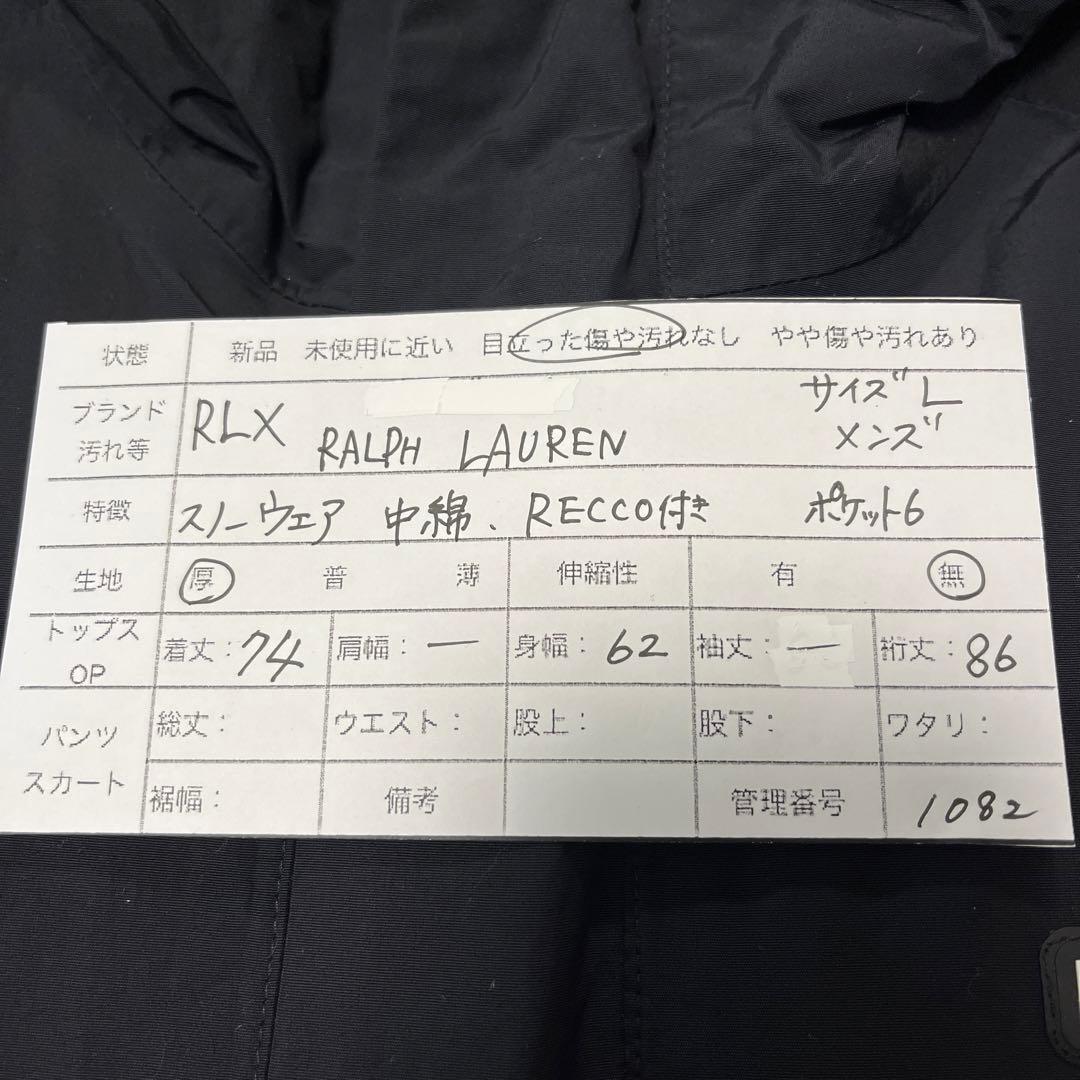 状態 新品 未使用に近い 目立った傷や汚れなし やや傷や汚れあり
ブランド 汚れ等 RLX RALPH LAUREN サイズ L メンズ
特徴 スノーウェア 中綿、RECCO付き ポケット6
生地 厚 普 薄 伸縮性 有 無
トップス OP 着丈：74 肩幅：ー 身幅：62 袖丈：ー 裄丈：86
パンツ スカート 総丈： ウエスト： 股上： 股下： ワタリ：
裾幅： 備考 管理番号 1082